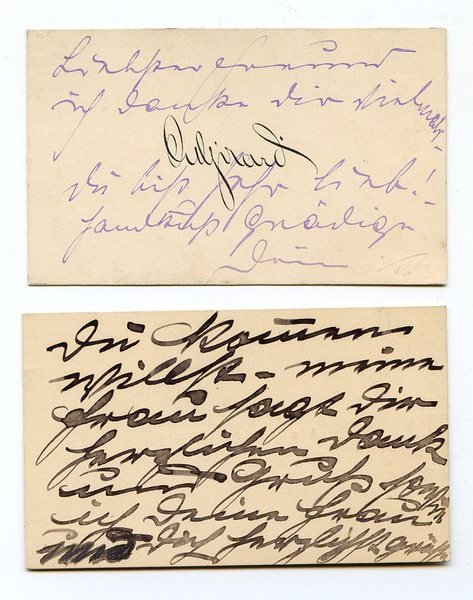 Liebster Freund
ich danke dir vielmals
AGirardi
du bist sehr lieb!
Handkuß Gnädige
Dein
du kommen
willst – meine
Frau sagt dir
herzlichen Dank
und Gruß
ich Deine Frau
und Dich herzlichst grüße